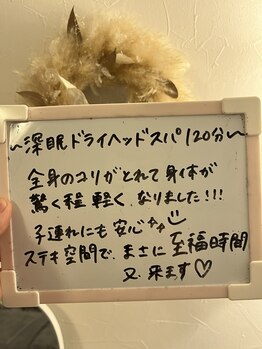 ~深眠ドライヘッドスパ120分~
全身のコリがとれて身体が
驚く程軽くなりました!!!
子連れにも安心
ステキ空間で、まさに至福時間
又、来ます♡